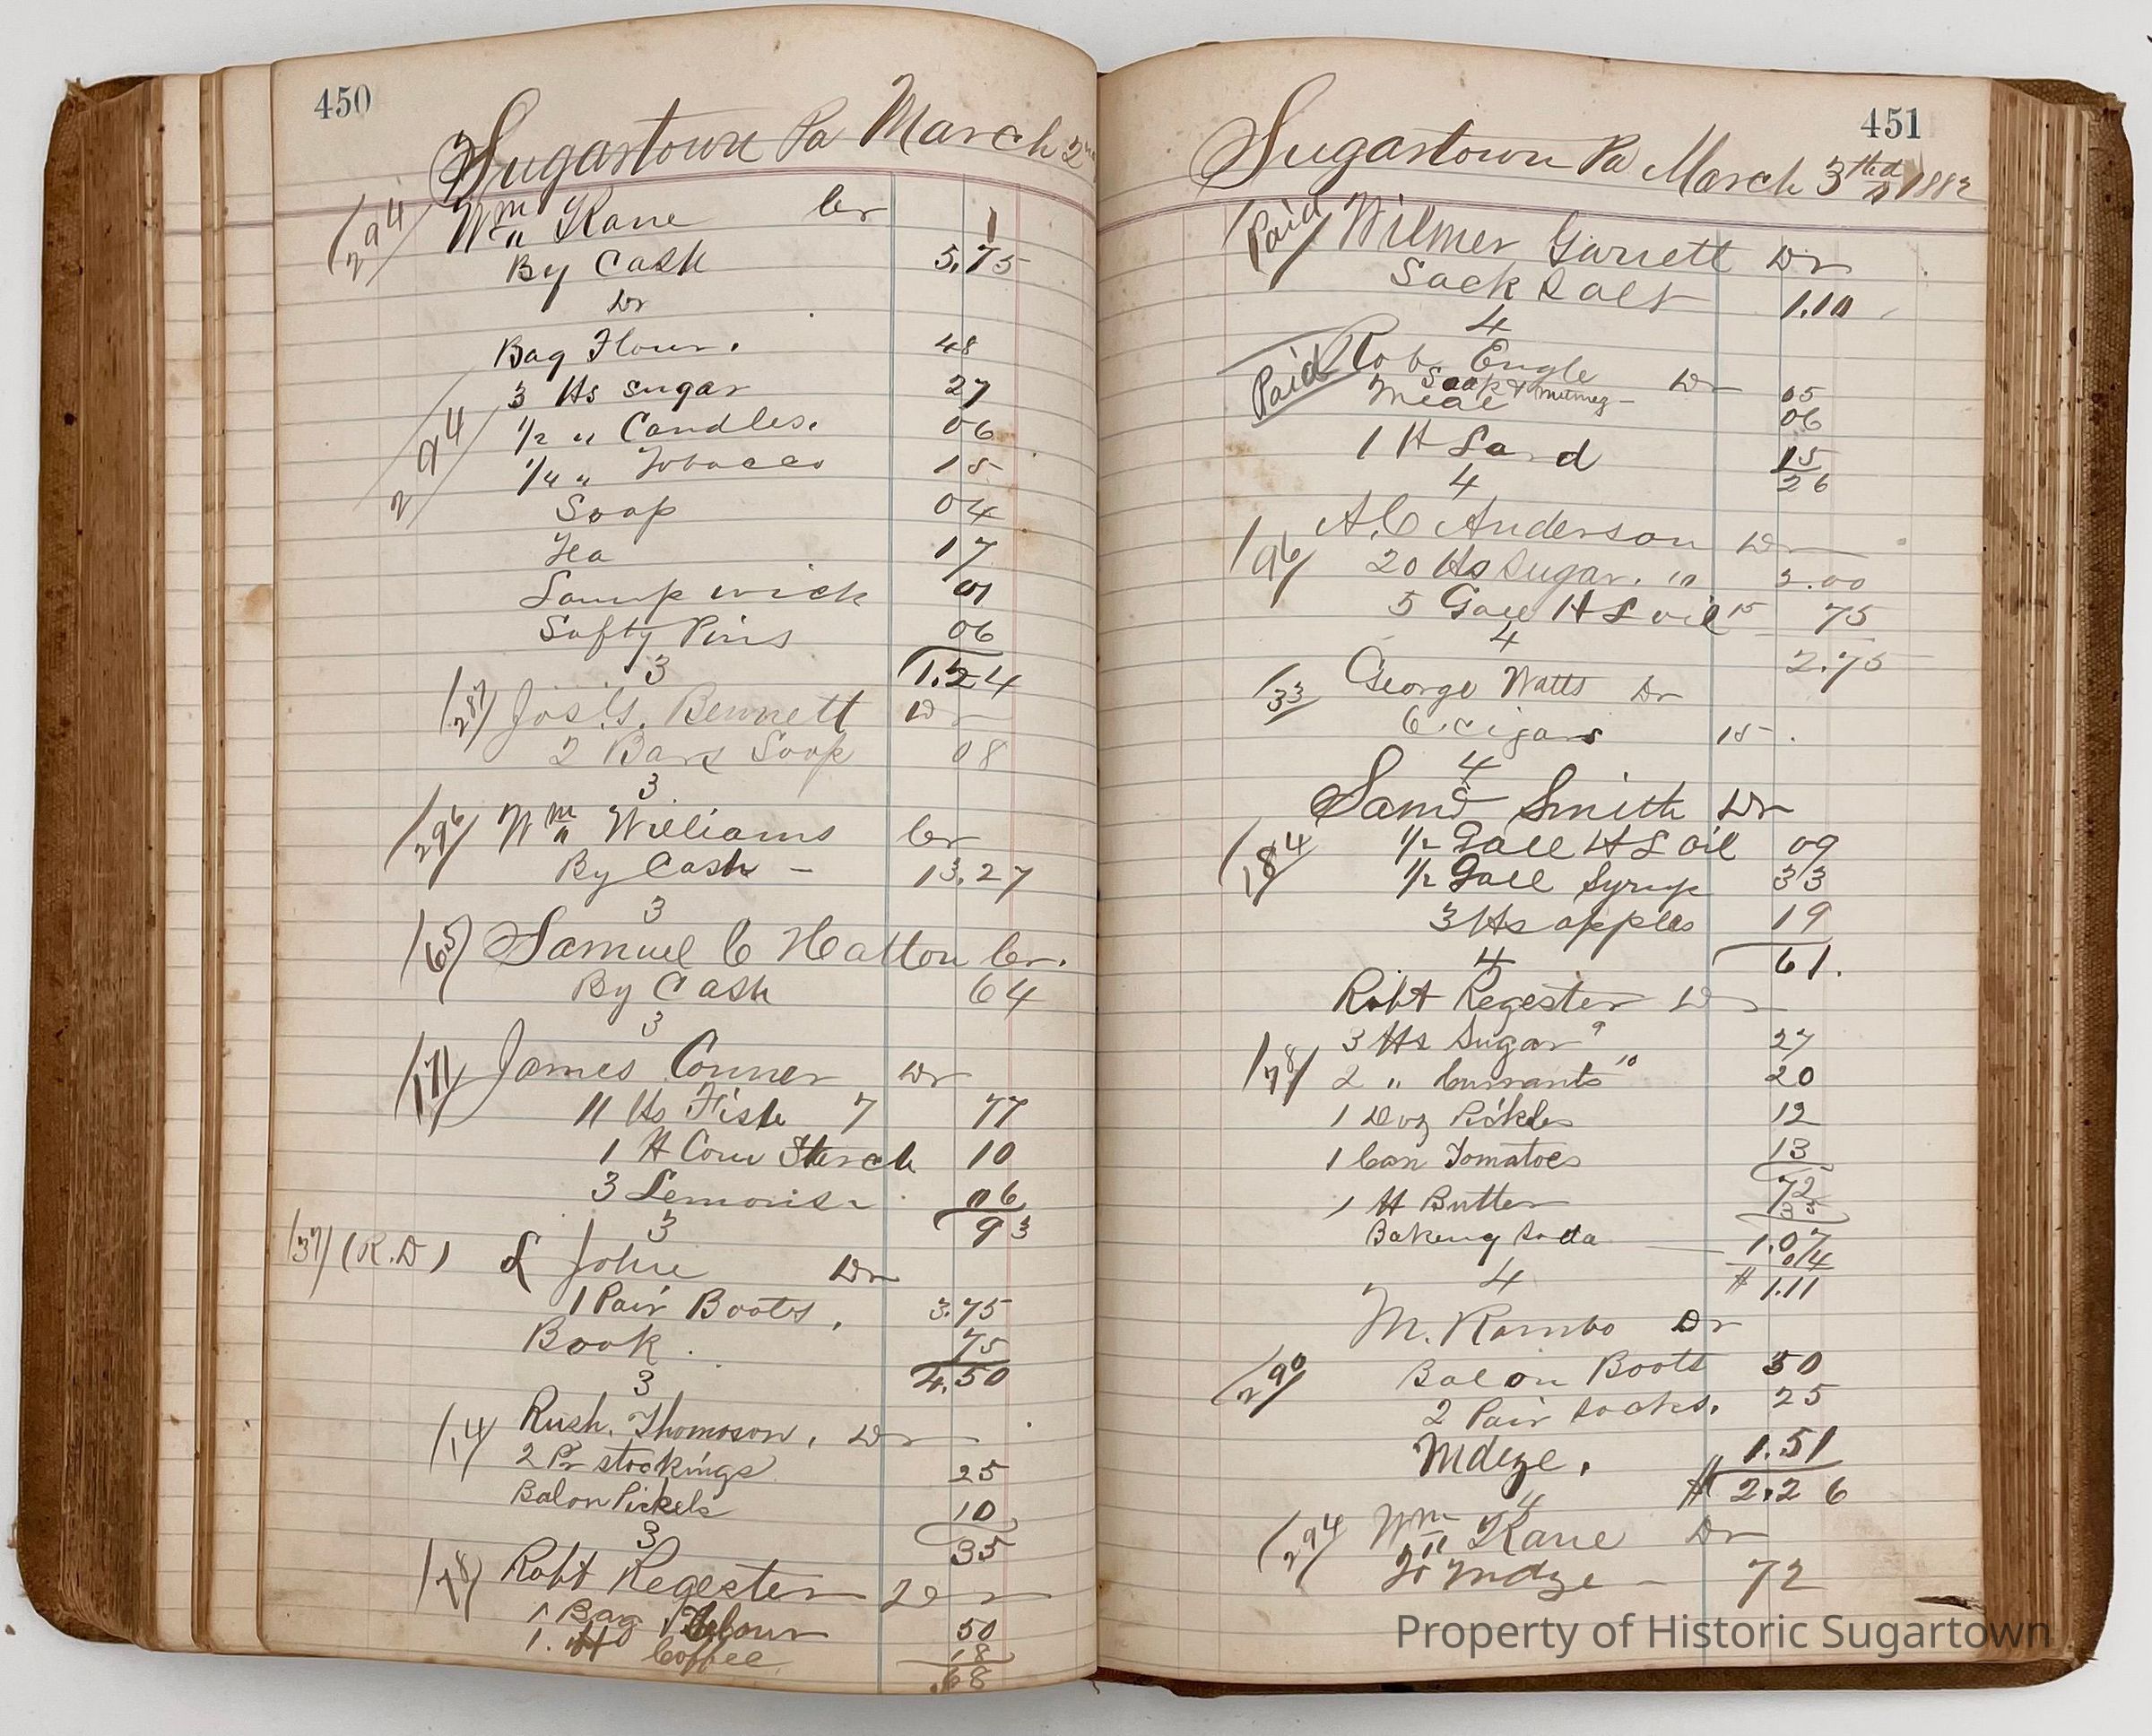 450
Sugartown Pa March 2nd
294 Wm Kane Cr
By Cash 5.75
Dr
Bag Flour. 48
3 lbs sugar 27
294 1/2 " Candles. 06
1/4 " Tobacco 15
Soap 04
Tea 17
Lamp wick 01
Safty Pins 06
3 1.24
287 Jos. G. Bennett Dr
2 Bars Soap 08
3
296 Wm Williams Cr
By Cash - 13.27
3
65 Samuel C Hatton Cr.
By Cash 64
3
171 James Conner Dr
11 lbs Fish 7 77
1 lb Corn Starch 10
3 Lemons 06
3 93
37 (R.D) L John Dr
1 Pair Boots, 3.75
Book. 75
3 4.50
14 Rush. Thomson, Dr
2 Pr stockings 25
Bal on Pickels 10
3 35
78 Robt Regester Dr
1 Bag Flour 50
1. lb Coffee 18
.68
451
Sugartown Pa March 3thd 1882
Paid Wilmer Garrett Dr
Sack Salt 1.10
4
Paid Rob. Engle Dr
Soap & Nutmeg - 05
Meal 06
1 lb Lard 15
4 26
A. C Anderson Dr
196 20 lbs Sugar. 10 2.00
5 Gall H L oil 15 75
4 2.75
33 George Watts Dr
6 cigars 15
4
Saml Smith Dr
184 1/2 Gall H L Oil 09
1/2 Gall Syrup 33
3 lbs apples 19
4 61.
Robt Regester Dr
3 lbs Sugar 9 27
78 2 " Currants 10 20
1 Doz Pickles 12
1 Can Tomatoes 13
72
1 lb Butter 35
1.07
Baking Soda 04
4 $ 1.11
M. Rambo Dr
290 Bal on Boots 50
2 Pair socks. 25
Mdze. 1.51
4 $ 2.26
294 Wm Kane Dr
To Mdze - 72
Property of Historic Sugartown